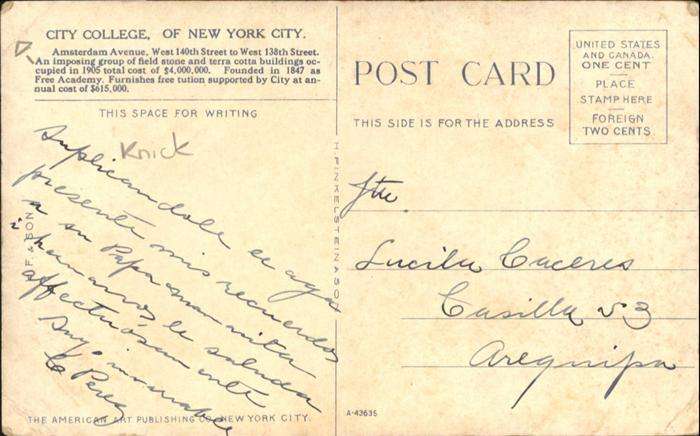 CITY COLLEGE, OF NEW YORK CITY.
Amsterdam Avenue, West 140th Street to West 138th Street.
An imposing group of field stone and terra cotta buildings oc-
cupied in 1905 total cost of $4,000,000. Founded in 1847 as
Free Academy. Furnishes free tution supported by City at an-
nual cost of $615,000.
THIS SPACE FOR WRITING
Knick
Suplicandole le haga
presente mis recuerdos
a su Papa mamita
i hermanos le saluda
affectuosamente
Su
C Perez
F & SON
THE AMERICAN ART PUBLISHING CO NEW YORK CITY.
H FINKELSTEIN & SON
POST CARD
THIS SIDE IS FOR THE ADDRESS
UNITED STATES
AND CANADA
ONE CENT
PLACE
STAMP HERE
FOREIGN
TWO CENTS
Lucila Caceres
Casilla
Arequipa
A-43635